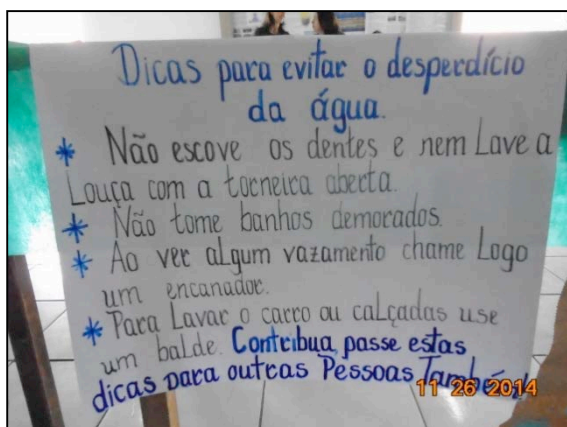 Dicas para evitar o desperdício
da água.
* Não escove os dentes e nem Lave a
Louça com a torneira aberta.
* Não tome banhos demorados.
* Ao ver algum vazamento chame Logo
um encanador.
* Para Lavar o carro ou calçadas use
um balde. Contribua passe estas
dicas para outras Pessoas Também!
11 26 2014